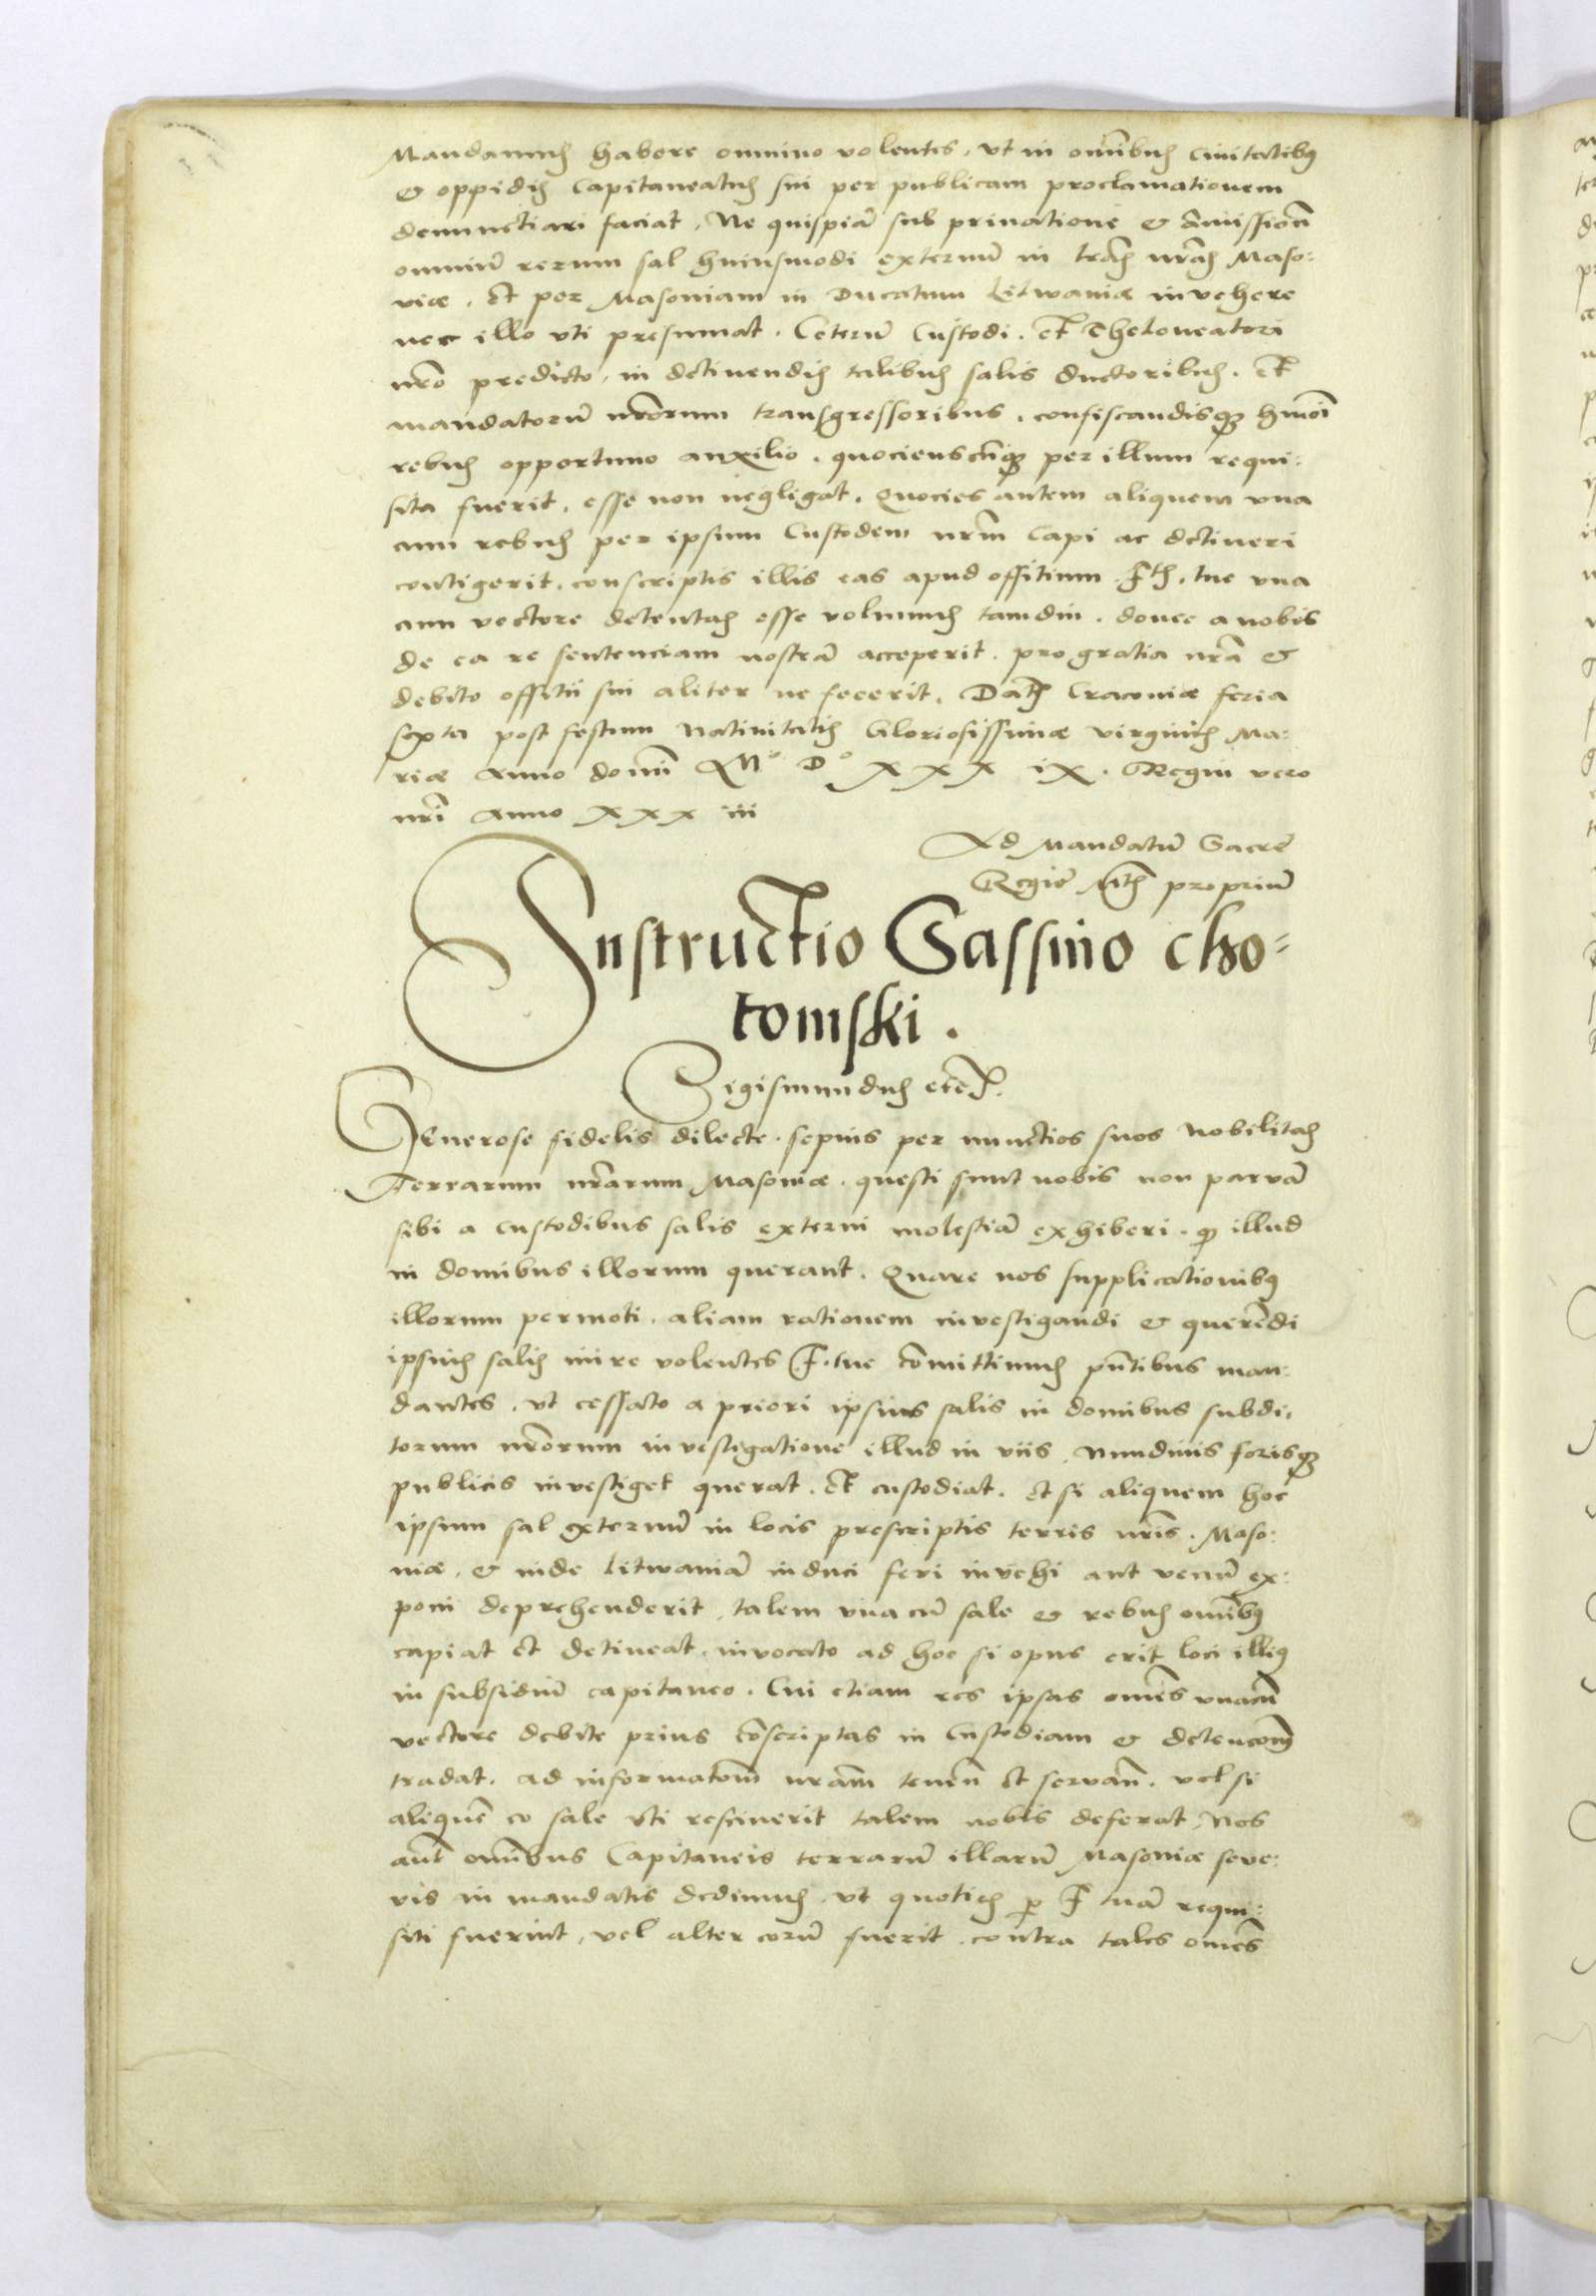 Mandamus habere omnino volentes, vt in omībus Ciuitatibus
& oppidis Capitaneatus sui per publicam proclamationem
denunctiari faciat, Ne quispiā sub priuatione & amissionē
omniū rerum sal huiusmodi externū in trās nrās Maso:
viæ, et per Masouiam in Ducatum Litwaniæ invehere
nec illo vti presumat. Ceterū Custodi, et Theloneatori
nrō predicto, in detinendis talibus salis ductoribus, et
mandatorū nrōrum transgressoribus, confiscandisque hmōi
rebus opportuno auxilio, quocienscūque per illum requi:
sita fuerit, esse non negligat. Quocies autem aliquem vna
cum rebus per ipsum Custodem nrm̄ Capi ac detineri
contigerit, conscriptis illis eas apud offitium F. tue vna
cum vectore detentas esse volumus tamdiu, donec a nobis
de ea re sentenciam nostrā acceperit. pro gratia nrā &
debito offitii sui aliter ne fecerit. Datū Craconiæ feria
sexta post festum Natiuitatis Gloriosissimæ virginis Ma:
riæ Anno domī Mº Dº XXX iX. Regni vero
nrī Anno XXX iii
Ad Mandatū Sacre
Regie Mtis propriū
Instructio Gassino Cho=
tomski.
Sigismundus etc.
Generose fidelis dilecte. sepius per nunctios suos Nobilitas
Terrarum nrārum Masouiæ, questi sunt nobis non parvā
sibi a custodibus salis externi molestiā exhiberi, q illud
in domibus illorum querant. Quare nos supplicationibus
illorum permoti, aliam rationem investigandi & querēdi
ipsius salis inire volentes F. tue cōmittimus pn̄tibus man:
dantes, vt cessato a priori ipsius salis in domibus subdi,
torum nrōrum investigatione illud in viis, Nundinis forisque
publicis investiget querat, et custodiat. et si aliquem hoc
ipsum sal externū in locis prescriptis terris nrīs. Maso:
uiæ, & inde Litwaniā induci feri invehi aut venū ex:
poni deprehenderit, talem vna cū sale & rebus omībus
capiat et detineat, invocato ad hoc si opus erit loci illius
in subsidiū capitaneo. Cui etiam res ipsas omēs vnacū
vectore debite prius cōscriptas in Custodiam & detencōm
tradat, ad informatōm nrām tenen̄ et servan̄. vel si
aliquē eo sale vti resciuerit talem nobis deferat, Nos
aut̄ omībus Capitaneis terrarū illarū Masouiæ seve:
ris in mandatis dedimus vt quoties p F tuā requi:
siti fuerint, vel alter eorū fuerit, contra tales omēs